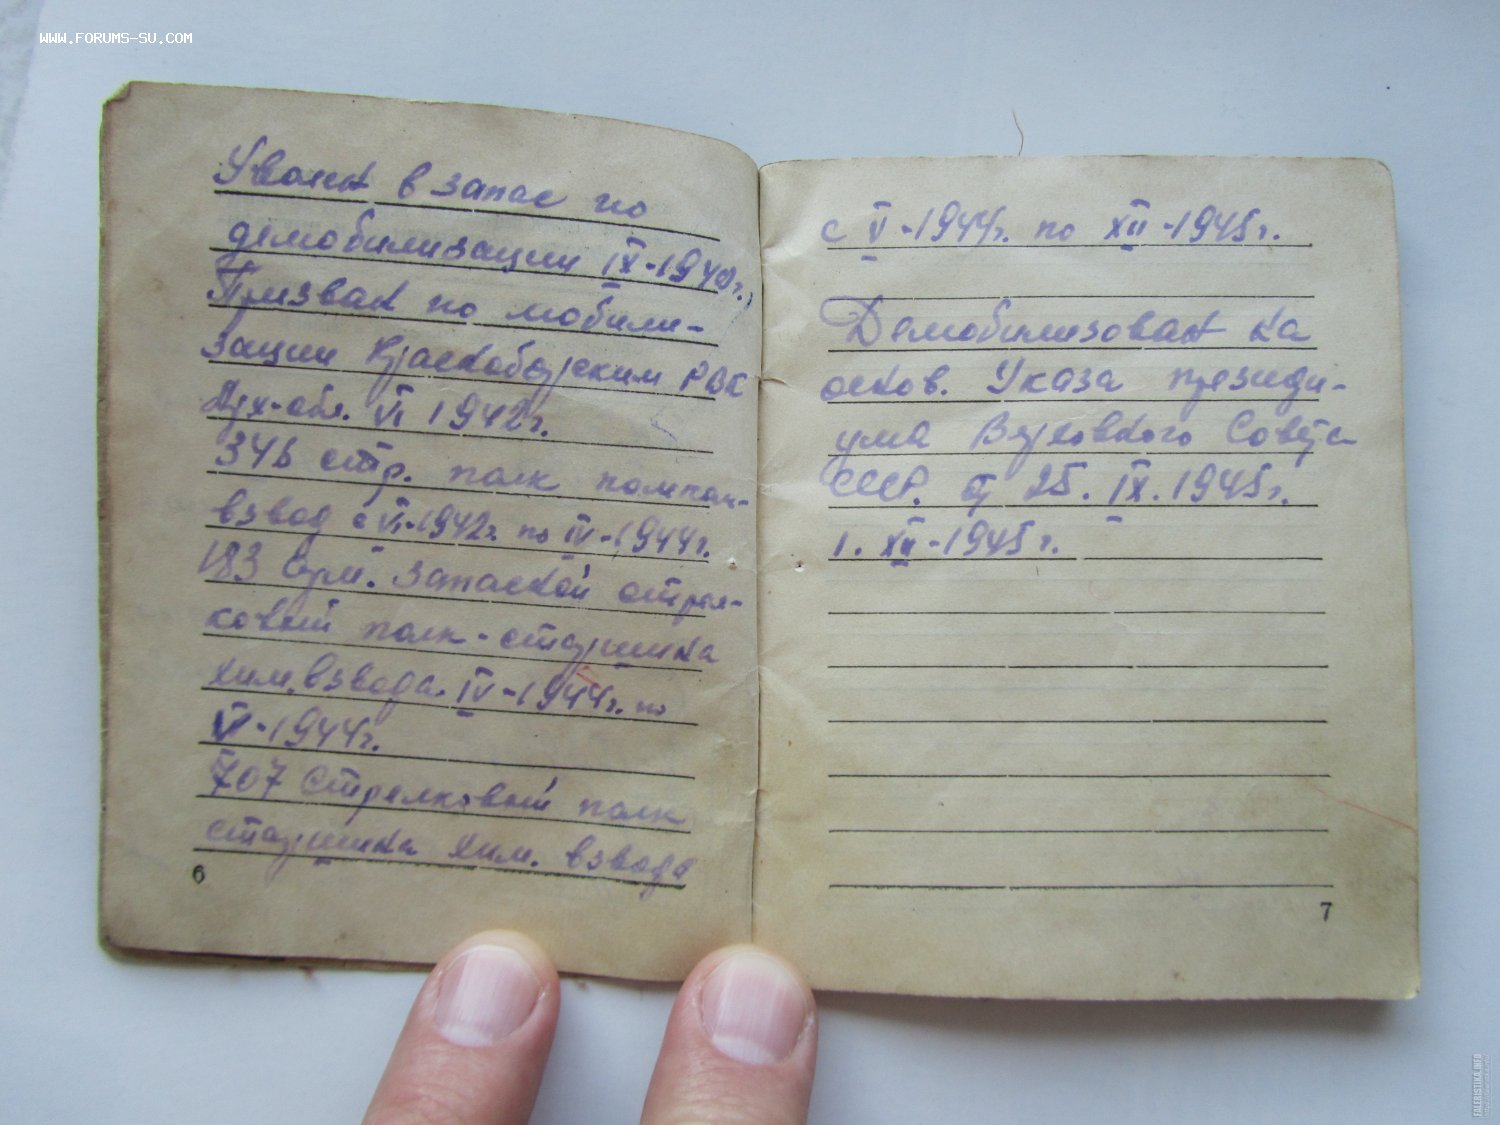 WWW.FORUMS-SU.COM
Уволен в запас по
демобилизации IX-1940г.
Призван по мобили-
зации Красноборским РВК
Арх-обл. VI 1942г.
346 стр. полк помком-
взвод с VI-1942г. по IV-1944г.
183 Арм. Запасной стрел-
ковый полк - старшина
хим. взвода. IV-1944г. по
V-1944г.
707 Стрелковый полк
старшина хим. взвода
6
с V-1944г. по XII-1945г.
Демобилизован на
основ. Указа президи-
ума Верховного Совета
СССР. от 25. IX. 1945г.
1. XII-1945г.
7
FALERISTIKA.INFO